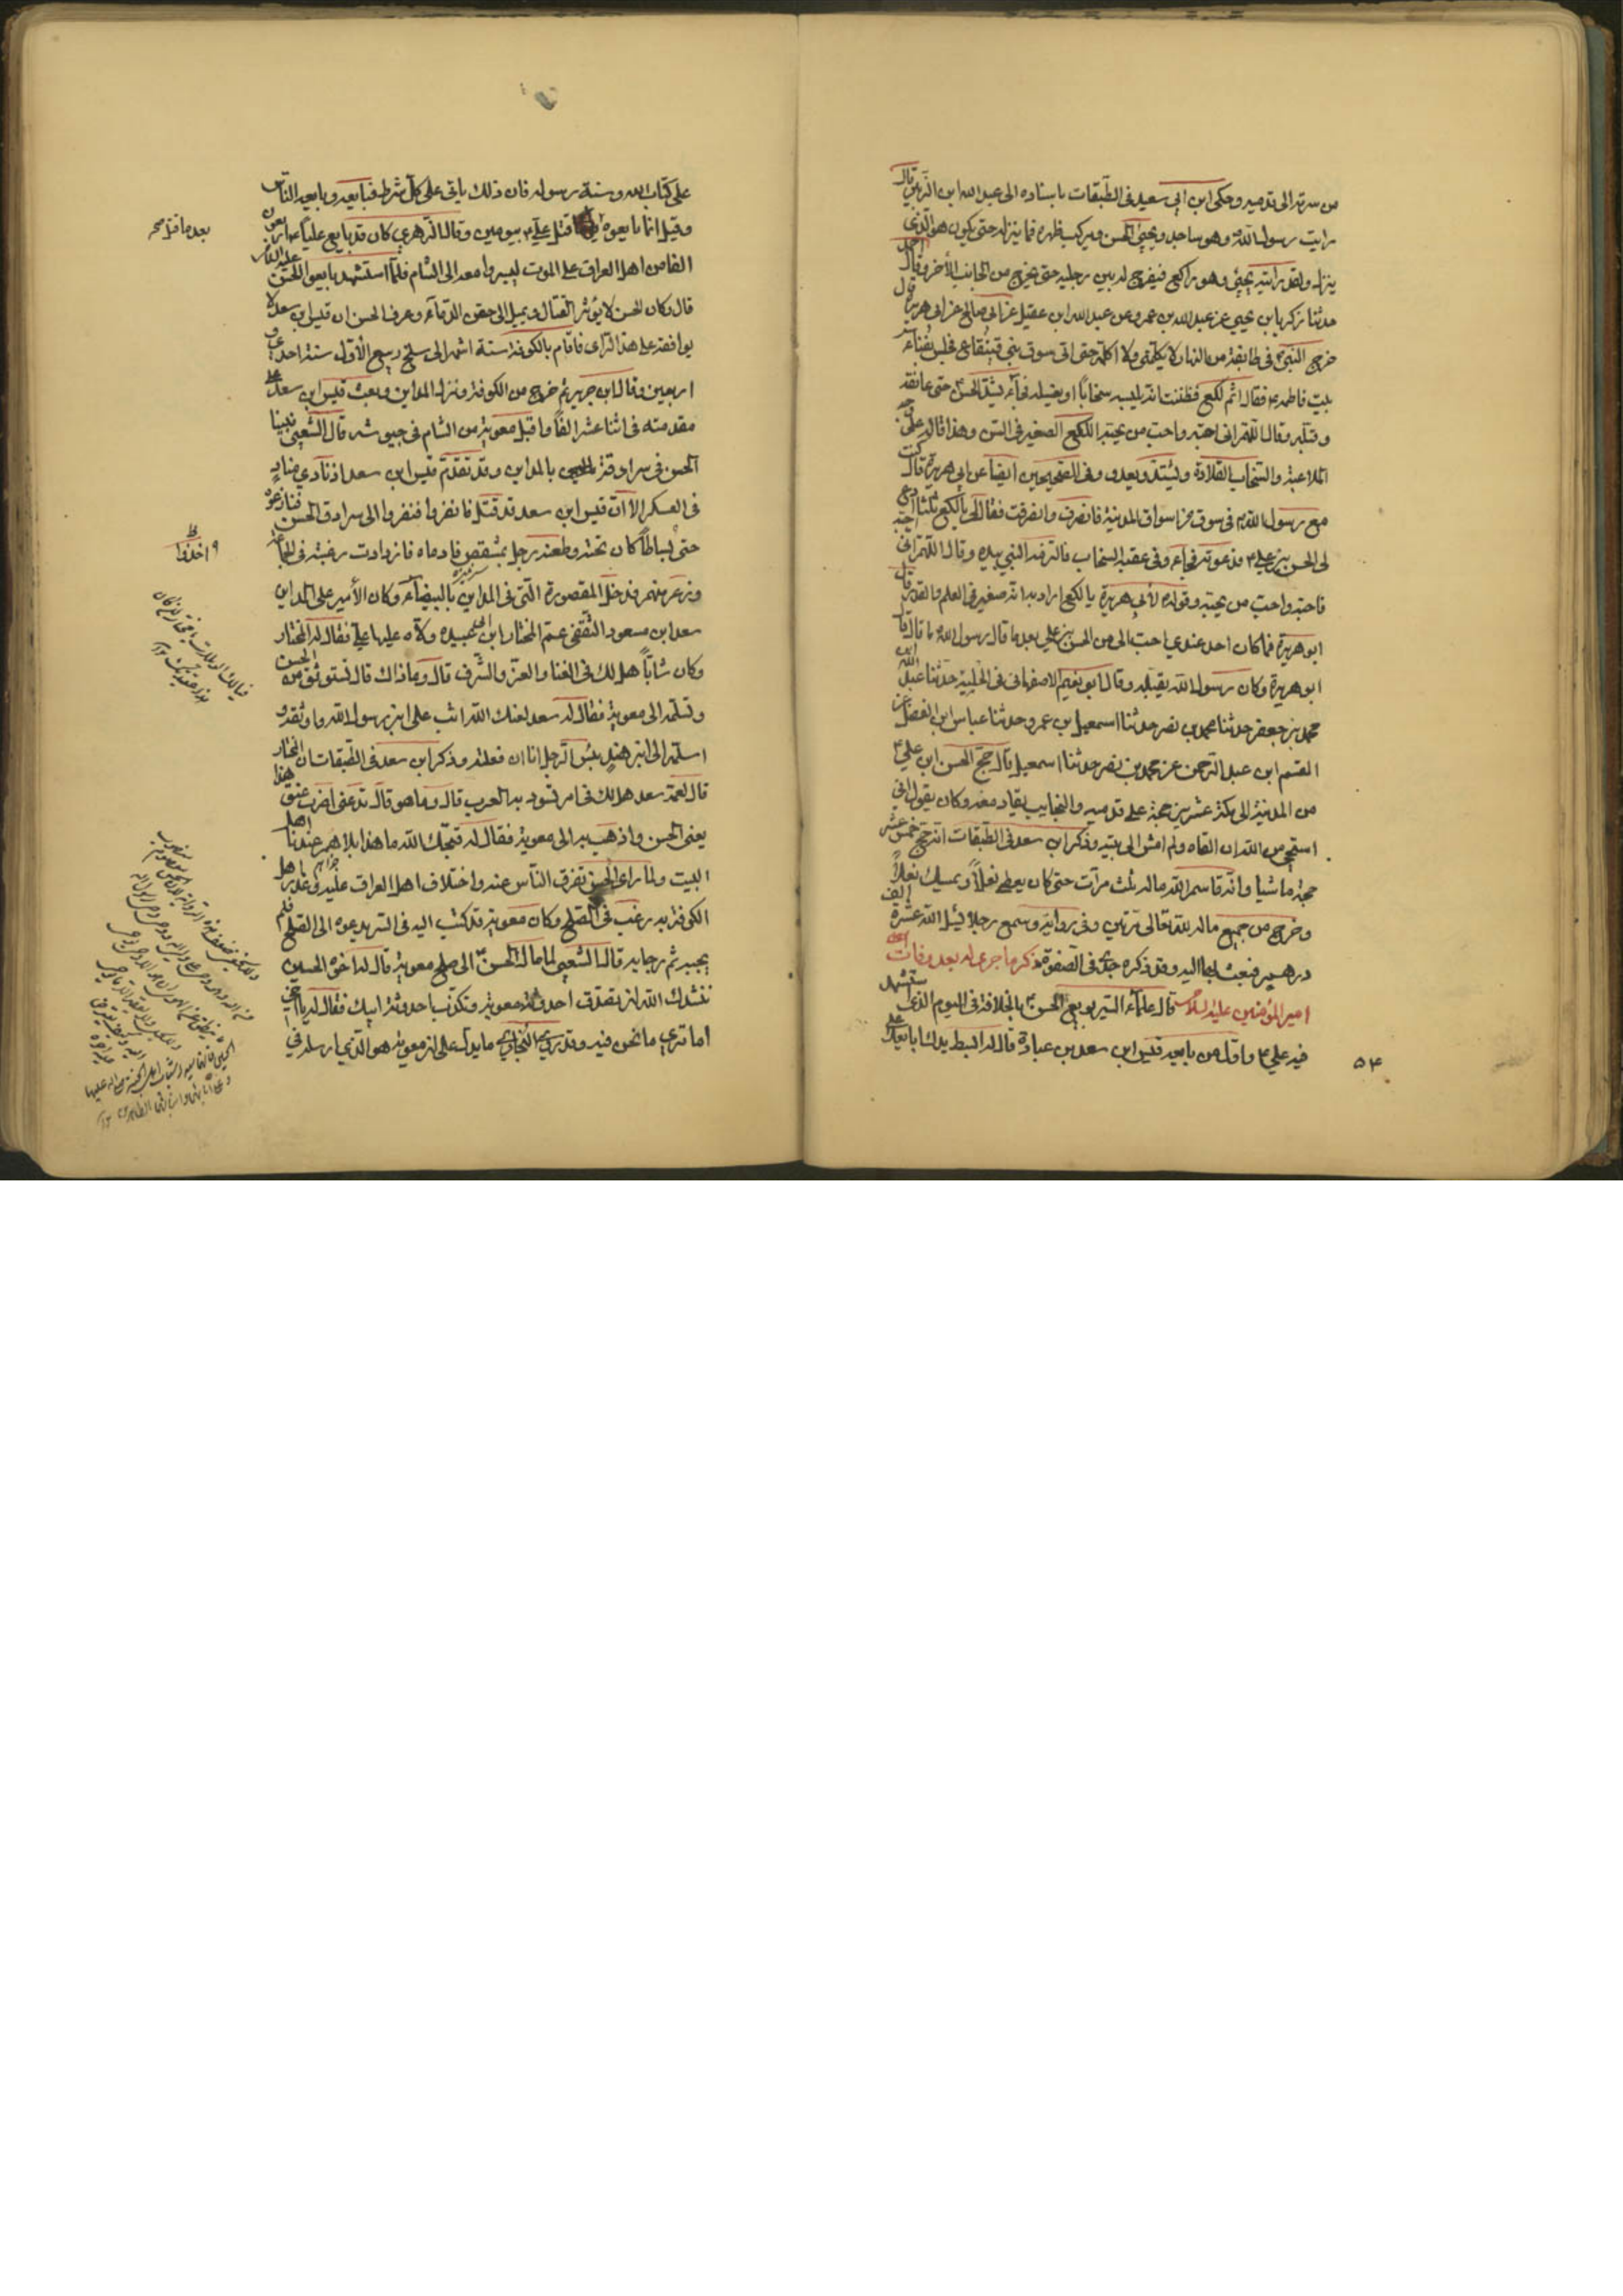 من سرته الى قدميه وحكى ابن ابي سعيد فى الطبقات باسناده الى عبد الله ابن الزبير قال
رايت رسول الله وهو ساجد ويجيئ الحسن ويركب ظهره فما ينزله حتى يكون هو الذى
ينزل ولقد رايته يجيئ وهو راكع فيفرج له بين رجليه حتى يخرج من الجانب الأخر وقال احمد
حدثنا زكريا بن يحيي عن عبيد الله بن عمرو عن عبد الله ابن عقيل عن ابى صالح عن ابى هريرة قال
خرج النبى فى طايفة من النهار لا يكلمنى ولا اكلمه حتى اتى سوق بنى قينقاع فجلس بفناء
بيت فاطمه فقال اثم لكع فظننت انه تلبسه سخابًا او تغسله فجاء يشتد الحسن حتى عانقه
وقبله وقال اللهم انى احبه واحب من يحبه اللكع الصغير فى السن وهذا قاله على
الملاعبة والسخاب القلادة ويشتد ويعدو وفى الصحيحين ايضا عن ابي هريرة قال كنت
مع رسول الله فى سوق من اسواق المدينة فانصرف وانصرفت فقال لى يا لكع ثلثا ادع
لى الحسن بن على فدعوته فجاء وفى عنقه السخاب فالتزمه النبي بيده وقال اللهم انى احبه
فاحبه واحب من يحبه وقوله لأبي هريرة يا لكع اراد به انه صغير فى العلم والقدر قال
ابو هريرة فما كان احد عندي احب الى من الحسن بن علي بعد ما قال رسول الله ما قال قال
ابو هريرة وكان رسول الله يقبله وقال ابو نعيم الاصفهانى فى الحلية حدثنا عبد الله ابن
محمد بن جعفر حدثنا محمد بن نصر حدثنا اسمعيل بن عمرو حدثنا عباس ابن الفضل عن
القسم ابن عبد الرحمن عن محمد بن نصر حدثنا اسمعيل قال حج الحسن ابن علي
من المدينة الى مكة عشرين حجة على قدميه والنجايب يقاد معه وكان يقول انى
استحى من الله ان القاه ولم امش الى بيته وذكر ابن سعد فى الطبقات انه حج خمس عشر
حجة ماشيا وانه قاسم الله ماله ثلث مرات حتى كان يعطى نعلاً ويمسك نعلاً
وخرج من جميع ماله لله تعالى مرتين وفى رواية وسمع رجلا يسئل الله عشرة الف
درهم فبعث بها اليه وقد ذكره جدى فى الصفوة ذكر ما جرى له بعد وفات
امير المؤمنين عليه السلام قال علماء السير بويع الحسن بالخلافة فى اليوم الذى استشهد
فيه علي واول من بايعه قيس ابن سعد بن عبادة قال له ابسط يدك ابايعك على
٥٤
على كتاب الله وسنة رسوله فان ذلك ياتى على كل شرط فبايعه وبايعه الناس
وقيل انما بايعوه قتل على بيومين وقال الزهري كان قد بايع علياً اربعون
بعد ما قتل صح
الفا من اهل العراق على الموت ليسروا معه الى الشام فلما استشهد بايعوا الحسن عليه السلام
قال وكان الحسن لا يؤثر القتال ويميل الى حقن الدماء وعرف الحسن ان قيس ابن سعد لا
يوافقه على هذا الراى فاقام بالكوفة ستة اشهر الى سلخ ربيع الأول سنة احدى و
اربعين وقال ابن جرير ثم خرج من الكوفة ونزل المداين وبعث قيس ابن سعد على
مقدمته فى اثنا عشر الفاً واقبل معوية من الشام فى جيوشه قال الشعبي فبينا
الحسن فى سرادقة بالمداين وقد تقدم قيس ابن سعد اذ نادى مناد
فى العسكر الا ان قيس ابن سعد قد قتل فانفروا فنفروا الى سرادق الحسن فنازعوه
حتى بساطاً كان تحته وطعنه رجل بمشقص فادماه فازدادت رغبته فى الجماعة
اخذوا
وذعر منهم فدخل المقصورة التى فى المداين بالبيضاء وكان الأمير على المداين
سعد ابن مسعود الثقفى عم المختار ابن ابى عبيده ولاه عليها على فقال له المختار
وكان شاباً هل لك فى الغنا والعز والشرف قال وما ذاك قال تستوثق من الحسن
وتسلمه الى معوية فقال له سعد لعنك الله اثب على ابن رسول الله واوثقه و
اسلمه الى ابن هند بئس الرجل انا ان فعلته وذكر ابن سعد فى الطبقات ان المختار
قال لعمه سعد هل لك فى امر تسود به العرب قال وما هو قال تدعنى اضرب عنق هذا
يعنى الحسن واذهب به الى معوية فقال له قبحك الله ما هذا بلاهم عندنا اهل
البيت ولما راى الحسن تفرق الناس عنه واختلاف اهل العراق عليه وغدر اهل
الكوفة به رغب فى الصلح وكان معوية قد كتب اليه فى السر يدعوه الى الصلح فلم
يجبه ثم رجا به قال الشعبى لما مال الحسن الى صلح معوية قال له اخوه الحسين
ننشدك الله ان تصدق احدوثة معوية وتكذب احدوثة ابيك فقال له يا اخى
اما ترى ما نحن فيه وقد روى البخارى ما يدل على ان معوية هو الذي ارسل فى